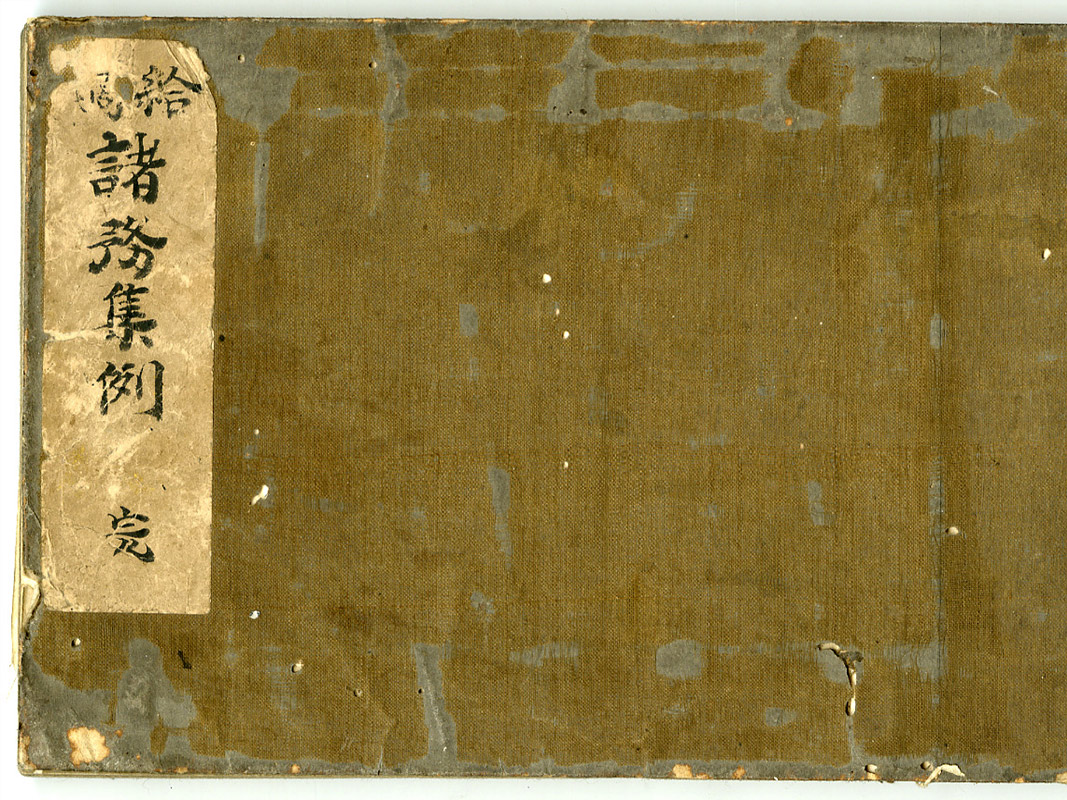 給
諸務集例
完